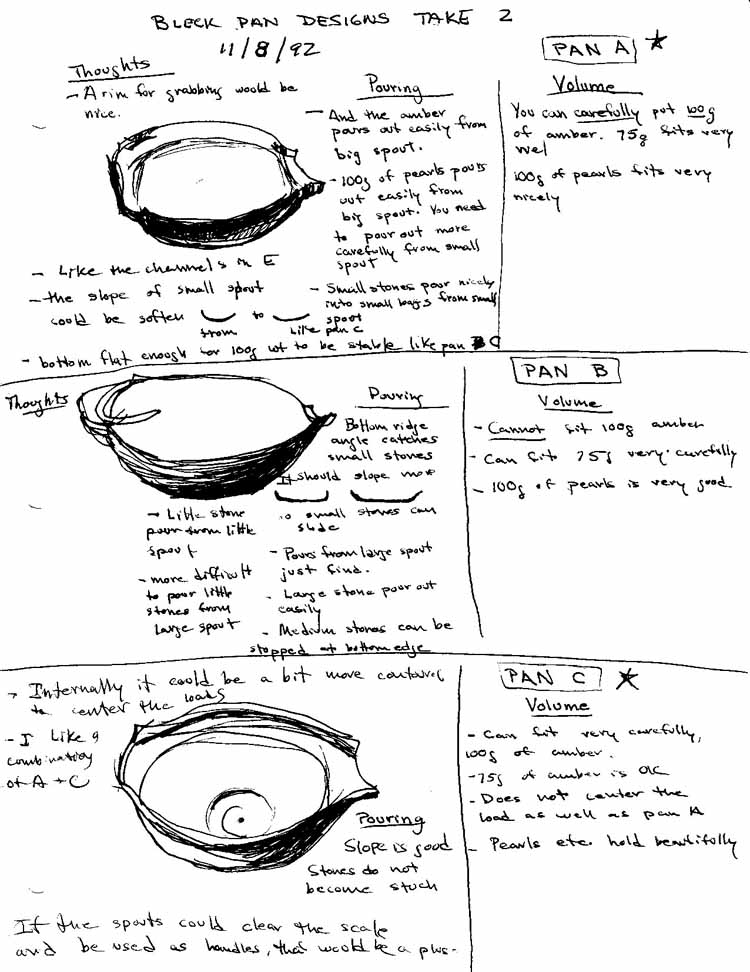 BLECK PAN DESIGNS TAKE 2
11/8/92
PAN A
Thoughts
- A rim for grabbing would be
nice.
Pouring
- And the amber
pours out easily from
big spout.
- 100g of pearls pours
out easily from
big spout. You need
to pour out more
carefully from small
spout
- Small stones pour nicely
into small bags from small
spout
- Like the channels in E
- the slope of small spout
could be soften
from
to
like pan C
- bottom flat enough for 100g wt to be stable like pan C
Volume
You can carefully put 100g
of amber. 75g fits very
well
100g of pearls fits very
nicely
PAN B
Thoughts
Pouring
Bottom ridge
angle catches
small stones
It should slope more
so small stones can
slide
- Pours from large spout
just find.
- Large stone pour out
easily
- Medium stones can be
stopped at bottom edge
- Little stone
pour from little
spout
- more difficult
to pour little
stones from
large spout
Volume
- Cannot fit 100g amber
- Can fit 75g very carefully
- 100g of pearls is very good
PAN C
- Internally it could be a bit more contoured
to center the loads
- I like a
combination
of A + C
Pouring
Slope is good
Stones do not
become stuck
Volume
- Can fit very carefully,
100g of amber.
- 75g of amber is OK
- Does not center the
load as well as pan A
- Pearls etc. hold beautifully
If the spouts could clear the scale
and be used as handles, that would be a plus.